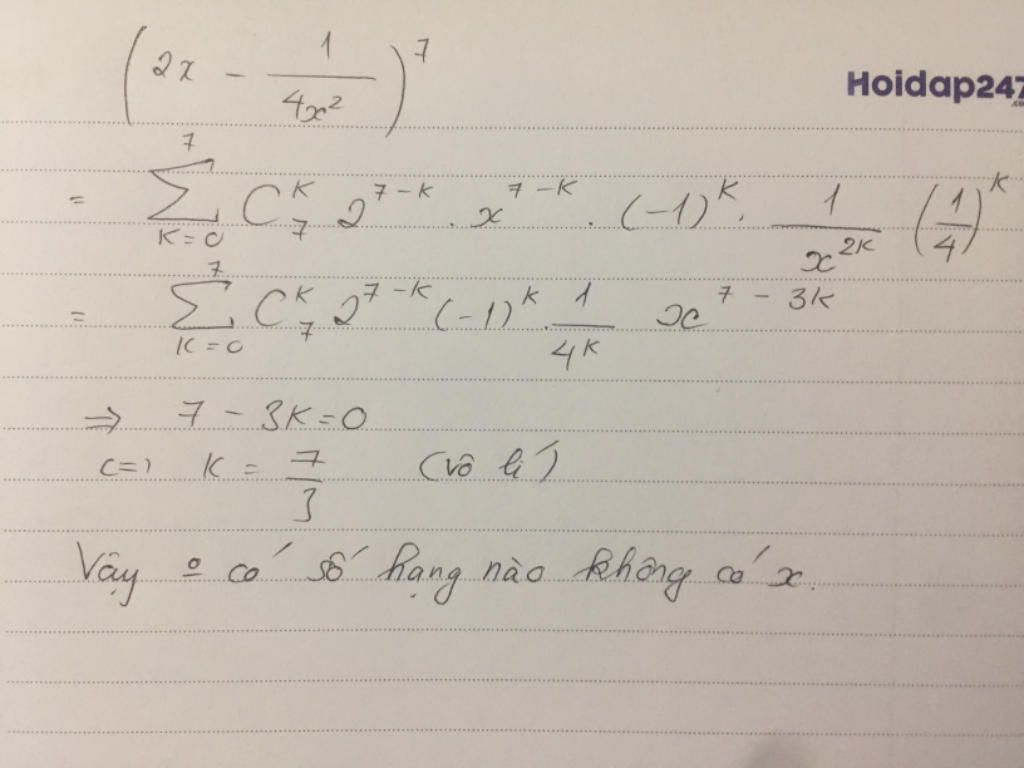 (2x - 1/4x²)⁷
Hoidap247.com
= ∑_{K=0}^{7} C_7^K 2^{7-K} . x^{7-K} . (-1)^K . 1/x^{2K} (1/4)^K
= ∑_{K=0}^{7} C_7^K 2^{7-K} (-1)^K . 1/4^K x^{7-3K}
⇒ 7 - 3K = 0
<=> K = 7/3 (vô lí)
Vậy º có số hạng nào không có x.